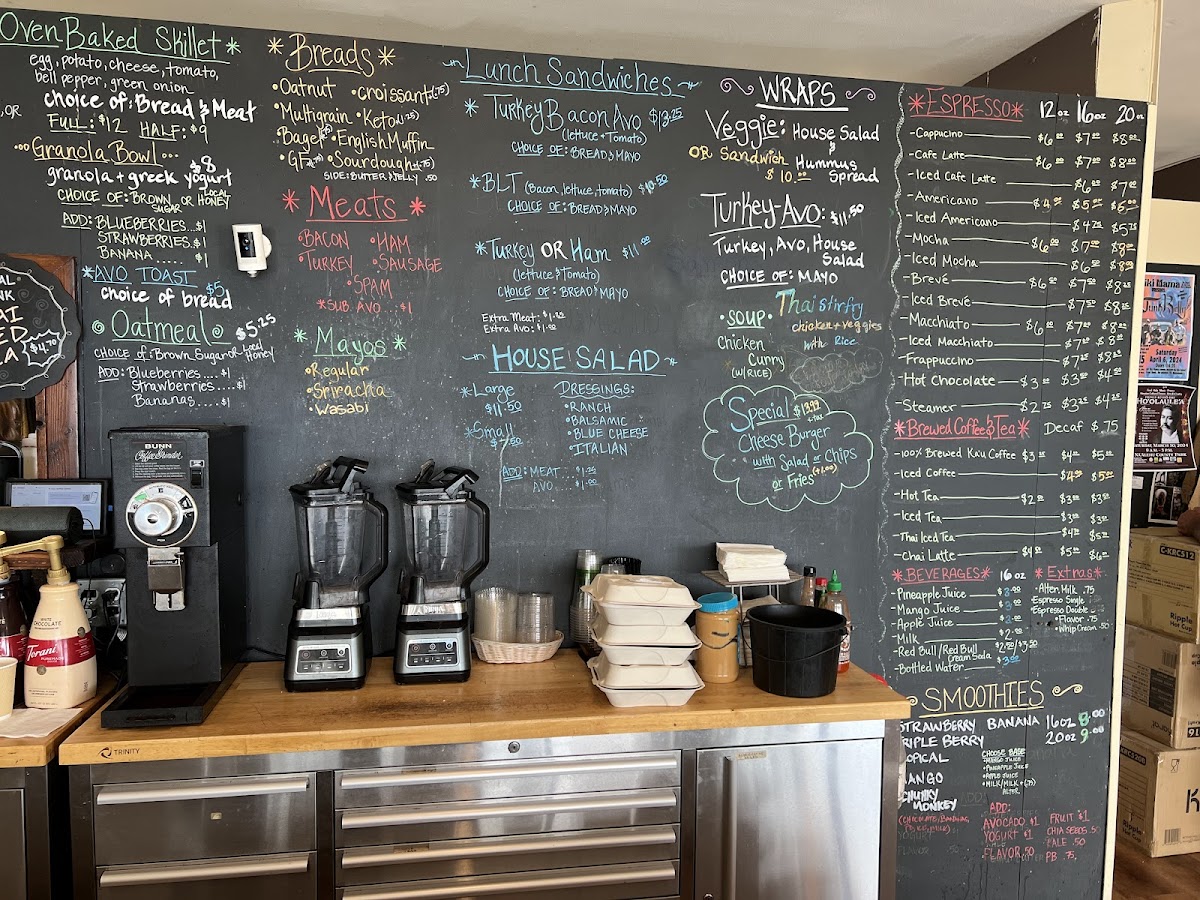 Oven Baked Skillet *
egg, potato, cheese, tomato,
bell pepper, green onion
OR
choice of: Bread & Meat
FULL: $12 HALF: $9
Granola Bowl... $8
granola + greek yogurt
CHOICE OF: BROWN SUGAR OR LOCAL HONEY
ADD: BLUEBERRIES...$1
STRAWBERRIES..$1
BANANA.....$1
*AVO TOAST $5
choice of bread
Oatmeal $5.25
CHOICE OF: Brown Sugar or Local Honey
ADD: Blueberries....$1
Strawberries....$1
Bananas.....$1
$4.70
* Breads *
•Oatnut •croissant(.75)
•Multigrain •Keto
•Bagel •English Muffin
•GF •Sourdough(.75)
SIDE: BUTTER & JELLY .50
* Meats *
•BACON •HAM
•TURKEY •SAUSAGE
•SPAM
*SUB AVO...$1
* Mayos *
•Regular
•Sriracha
•Wasabi
Lunch Sandwiches
* Turkey Bacon Avo $13.25
(lettuce + Tomato)
CHOICE OF: BREAD & MAYO
*BLT (Bacon, lettuce, tomato) $10.50
CHOICE OF: BREAD & MAYO
*Turkey OR Ham $11.00
(lettuce & Tomato)
CHOICE OF: BREAD & MAYO
Extra Meat: $1.50
Extra Avo: $1.00
HOUSE SALAD
*Large
$11.50
*Small
$7.50
DRESSINGS:
•RANCH
•BALSAMIC
•BLUE CHEESE
•ITALIAN
ADD: MEAT...$1.50
AVO...$1.00
WRAPS
Veggie: House Salad
&
OR Sandwich Hummus
$10.00 Spread
Turkey-Avo: $11.50
Turkey, Avo, House
Salad
CHOICE OF: MAYO
•SOUP•
Chicken
Curry
(w/ RICE)
Thai Stirfry
chicken + veggies
with Rice
Special $13.99
+tax
Cheese Burger
with Salad or Chips
or Fries (+1.00)
*ESPRESSO* 12oz 16oz 20oz
-Cappucino $6.00 $7.00 $8.00
-Cafe Latte $6.00 $7.00 $8.00
-Iced Cafe Latte $6.00 $7.00
-Americano $4.25 $5.25 $6.00
-Iced Americano $4.75 $5.75
-Mocha $6.00 $7.00 $8.00
-Iced Mocha $6.00 $8.00
-Brevé $7.25 $8.25
-Iced Brevé $7.25 $8.25
-Macchiato $6.00 $7.00 $8.00
-Iced Macchiato $7.00 $8.00
-Frappuccino $7.25 $8.25
-Hot Chocolate $3.00 $3.50 $4.50
-Steamer $2.75 $3.25 $4.25
*Brewed Coffee & Tea* Decaf $.75
-100% Brewed Ka'u Coffee $3.00 $4.00 $5.00
-Iced Coffee $4.50 $5.50
-Hot Tea $2.50 $3.00 $3.50
-Iced Tea $3.00 $3.50
-Thai Iced Tea $4.50 $5.50
-Chai Latte $4.00 $5.00 $6.00
*BEVERAGES* 16oz
-Pineapple Juice
-Mango Juice
-Apple Juice
-Milk
-Red Bull /Red Bull
Cream Soda
-Bottled Water
*Extras*
-Alter. Milk .75
-Espresso Single
-Espresso Double
-Flavor .75
-Whip Cream .50
SMOOTHIES
STRAWBERRY BANANA 16oz 8.00
TRIPLE BERRY 20oz 9.00
TROPICAL
MANGO
CHUNKY
MONKEY
CHOOSE BASE
•MANGO JUICE
•PINEAPPLE JUICE
•APPLE JUICE
•MILK/MILK+(.75)
ALTER.
ADD:
AVOCADO $1
YOGURT $1
FLAVOR .50
FRUIT $1
CHIA SEEDS .50
KALE .50
PB .75
BUNN
Coffee Grinder
WHITE
CHOCOLATE
Torani
PUREMADE
TRINITY
Saturday
April 6, 2024
HO'OLAULE'A
C-KRC512
Ripple
Hot Cup